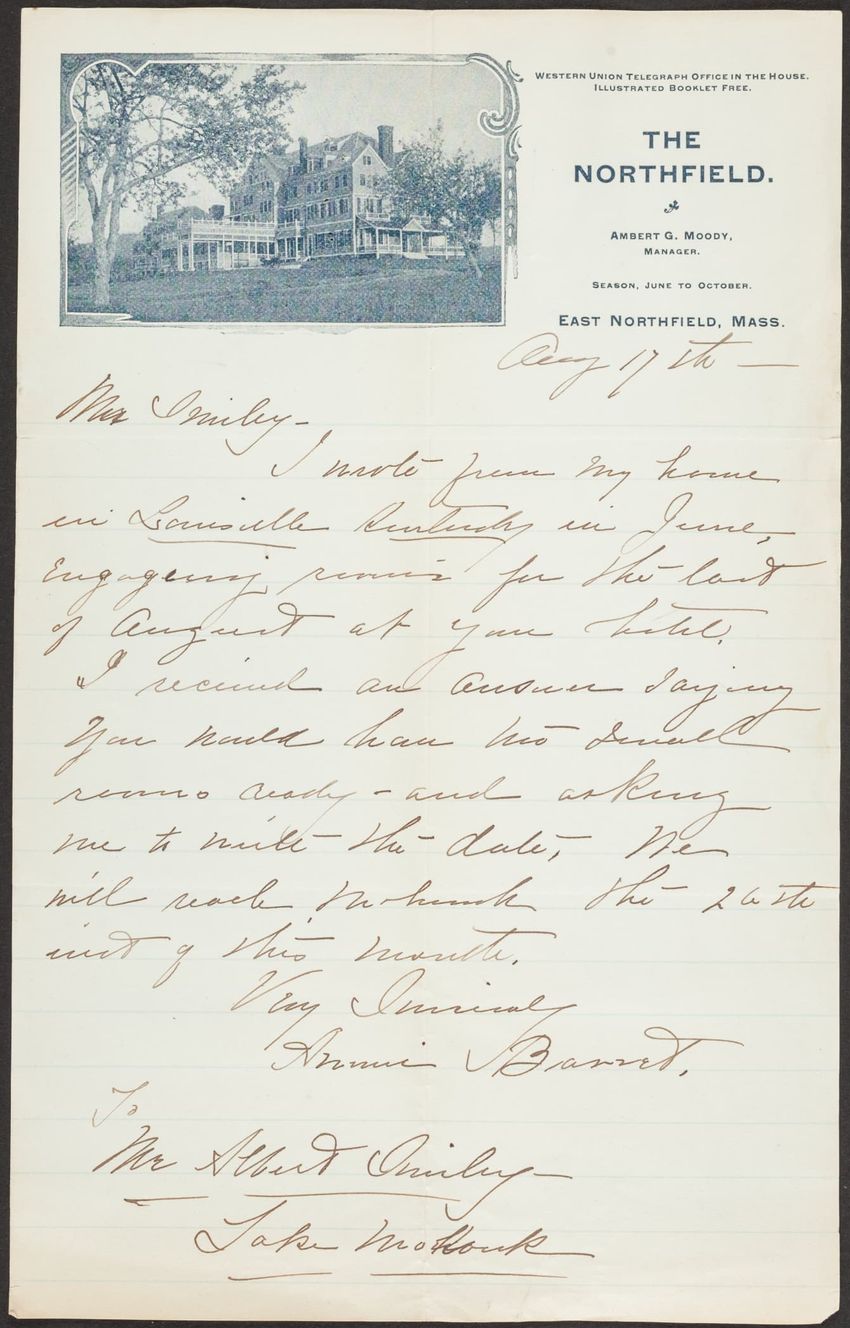 WESTERN UNION TELEGRAPH OFFICE IN THE HOUSE.
ILLUSTRATED BOOKLET FREE.
THE
NORTHFIELD.
AMBERT G. MOODY,
MANAGER.
SEASON, JUNE TO OCTOBER.
EAST NORTHFIELD, MASS.
Aug 17th —
Mr Smiley –
I wrote from my home
in Louisville Kentucky in June,
Engaging rooms for the last
of August at your hotel.
I received an answer saying
you would have two small
rooms ready – and asking
me to write the date, We
will reach Mohonk the 26th
inst of this month.
Very Sincerely
Annie Barret.
To
Mr Albert Smiley –
Lake Mohonk